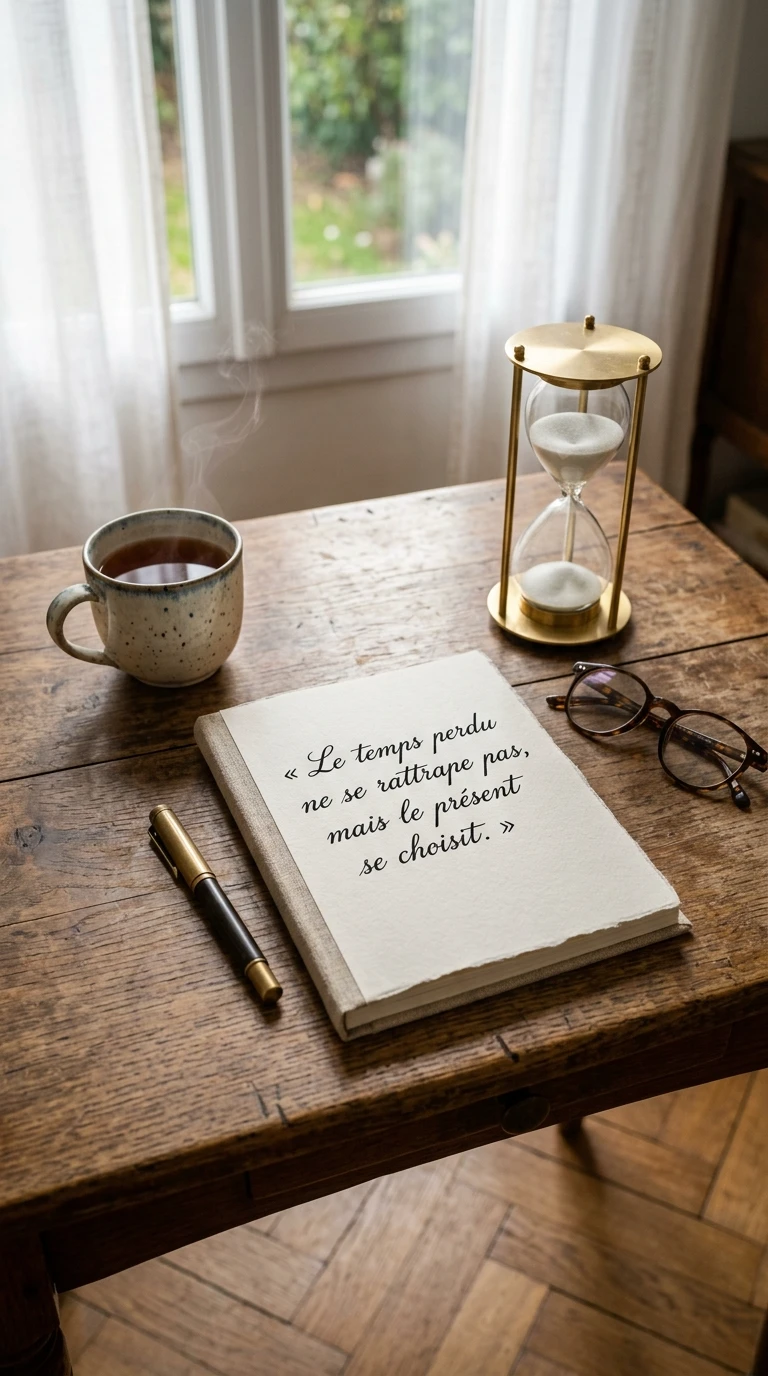 « Le temps perdu
ne se rattrape pas,
mais le présent
se choisit. »